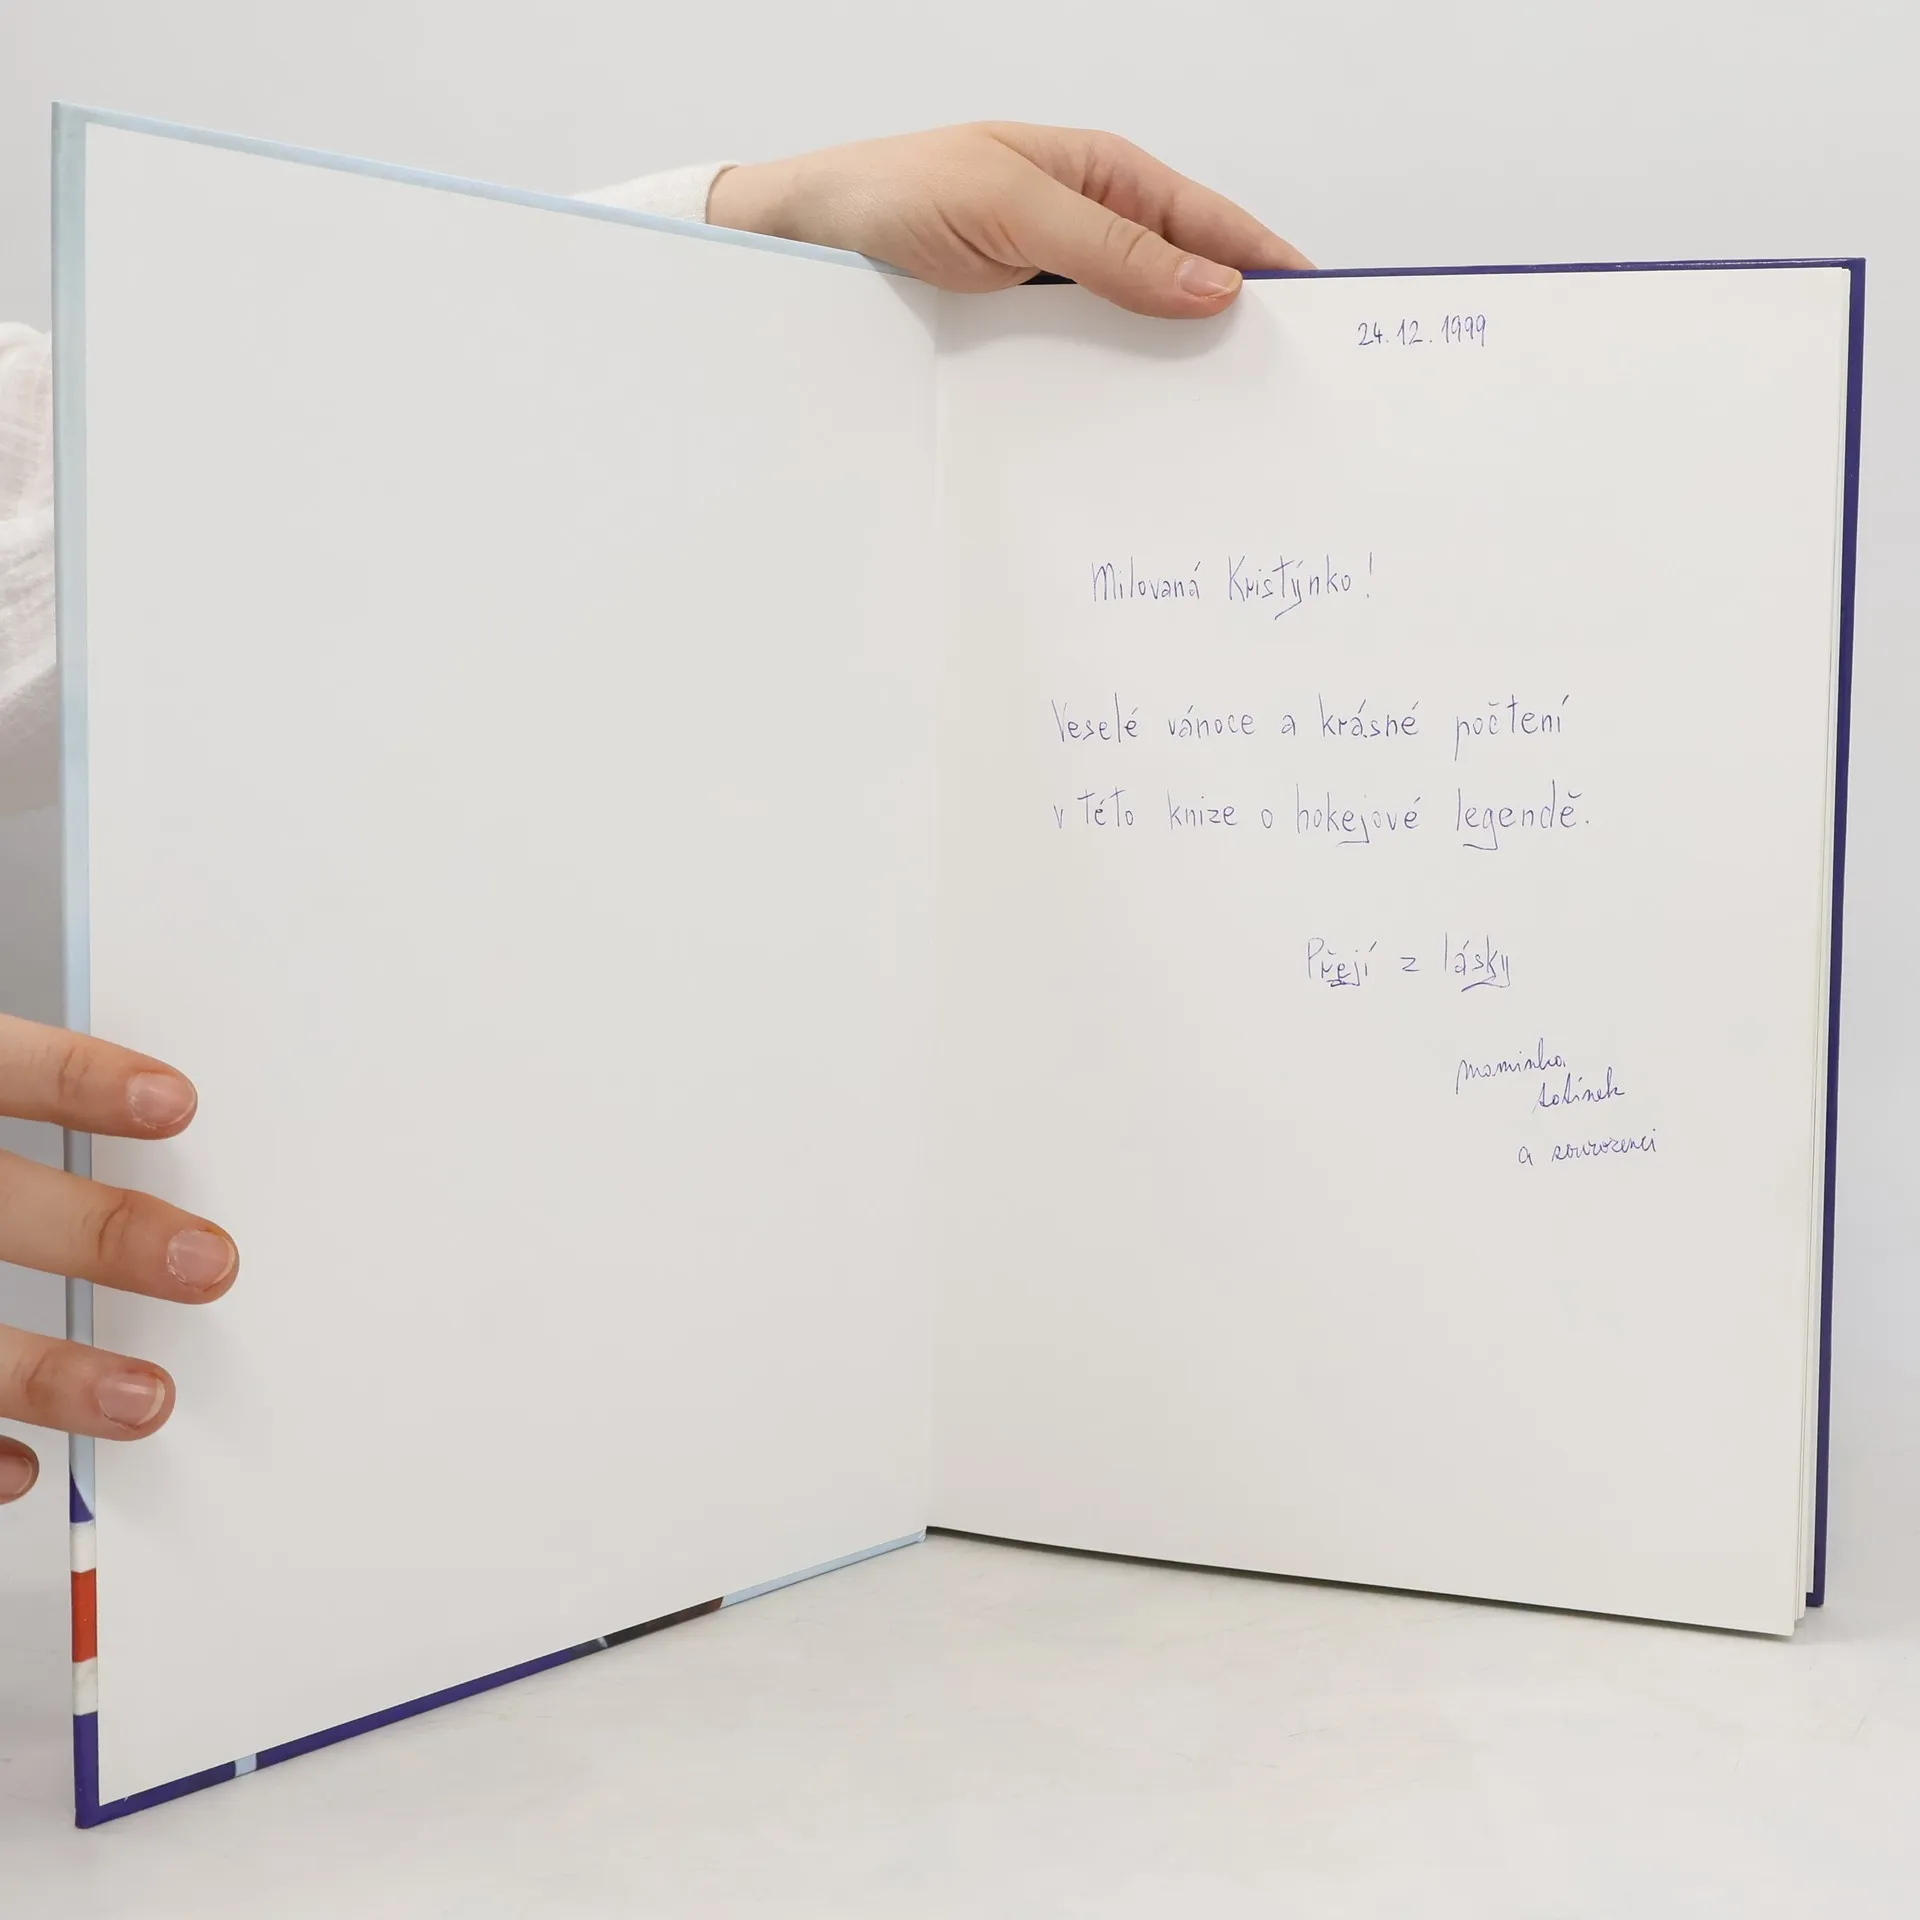 24.12.1999
Milovaná Kristýnko!
Veselé vánoce a krásné počtení
v této knize o hokejové legendě.
Přejí z lásky
maminka
tatínek
a sourozenci